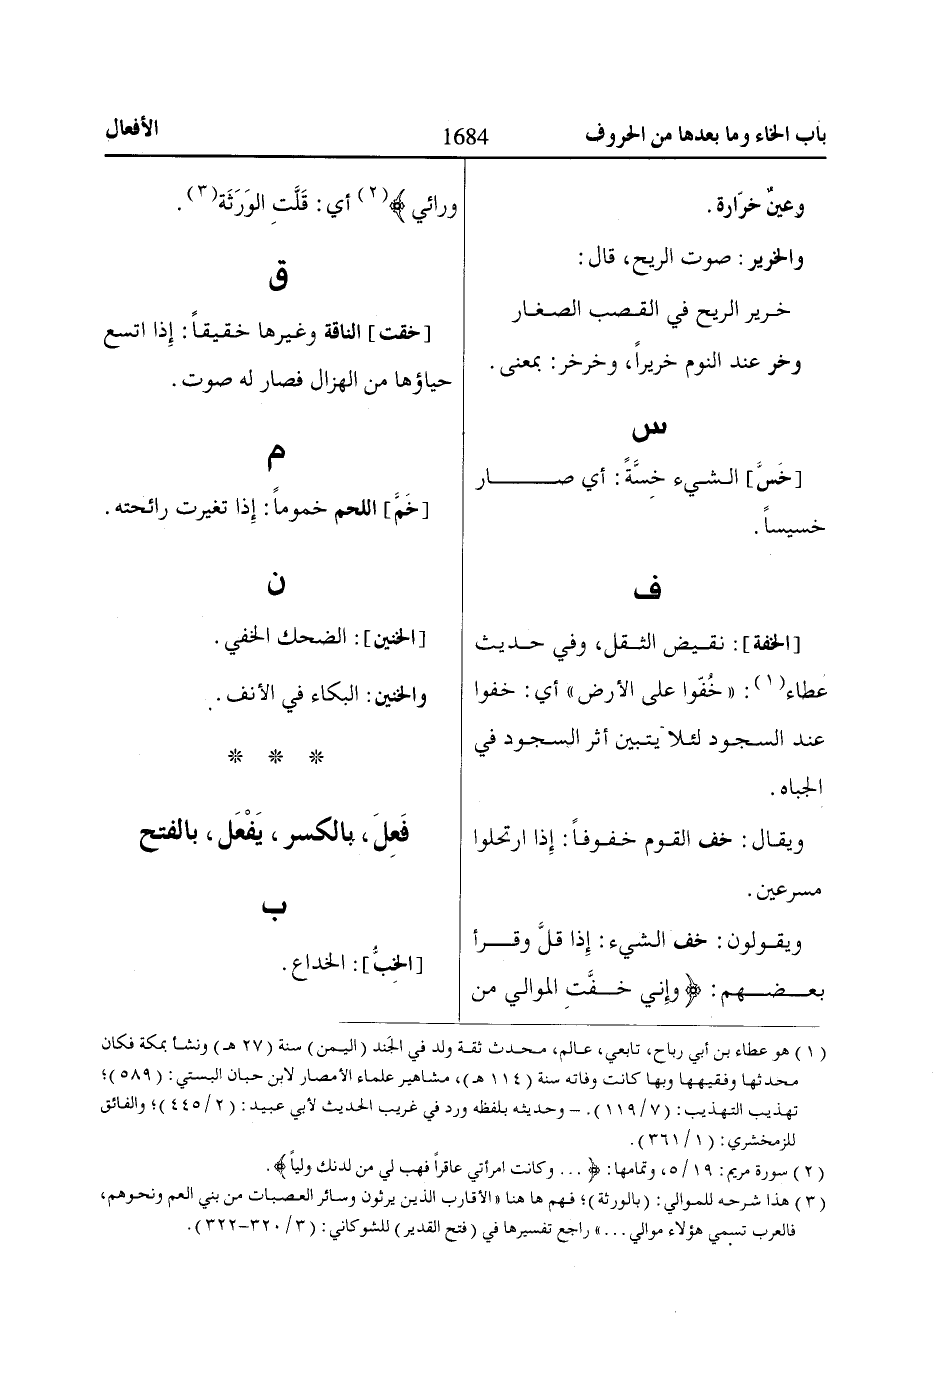 باب الخاء وما بعدها من الحروف
1684
الأفعال
وعينٌ خرّارة .
والخرير : صوت الريح، قال :
خـرير الريح في القـصب الصغـار
وخر عند النوم خريراً، وخرخر : بمعنى .
س
[خَسَّ] الـشيء خِسَّةً : أي صـــــــار
خسيساً .
ف
[الخفة] : نقـيض الثـقل، وفي حـديث
عطاء(١) : «خُفّوا على الأرض» أي : خفوا
عند السجود لئلا يتبين أثر السجود في
الجباه .
ويقـال : خف القـوم خـفـوفـاً : إذا ارتحلوا
مسرعين .
ويقـولون : خف الشيء : إذا قلَّ وقـــرأ
بعــضــهم : ﴿وإني خــفَّتِ الموالي من
ورائي﴾(٢) أي : قَلَّتِ الوَرَثَة(٣) .
ق
[خقت] الناقة وغيرها خقيقاً : إذا اتسع
حياؤها من الهزال فصار له صوت .
م
[خَمَّ] اللحم خموماً : إذا تغيرت رائحته .
ن
[الخنين] : الضحك الخفي .
والخنين : البكاء في الأنف .
* * *
فَعِلَ، بالكسر، يَفْعَل، بالفتح
ب
[الخِبُّ] : الخداع .
(١) هو عطاء بن أبي رباح، تابعي، عـالم، مـحـدث ثقـة ولد في الجَند (اليـمن) سنة (٢٧ هـ) ونشـأ بمكة فكان
محدثها وفقيهها وبها كانت وفاته سنة (١١٤ هـ)، مشاهير علماء الأمصار لابن حبان البستي : (٥٨٩)؛
تهذيب التهذيب : (٧/١١٩). – وحديثه بلفظه ورد في غريب الحديث لأبي عبيد : (٢/٤٤٥)؛ والفائق
للزمخشري : (١/٣٦١).
(٢) سورة مريم : ١٩/٥، وتمامها : ﴿... وكانت امرأتي عاقراً فهب لي من لدنك ولياً﴾.
(٣) هذا شرحه للموالي : (بالورثة)؛ فـهم ها هنا «الأقارب الذين يرثون وسائر العصبات من بني العم ونحوهم،
فالعرب تسمي هؤلاء موالي...» راجع تفسيرها في (فتح القدير) للشوكاني : (٣/٣٢٠-٣٢٢).